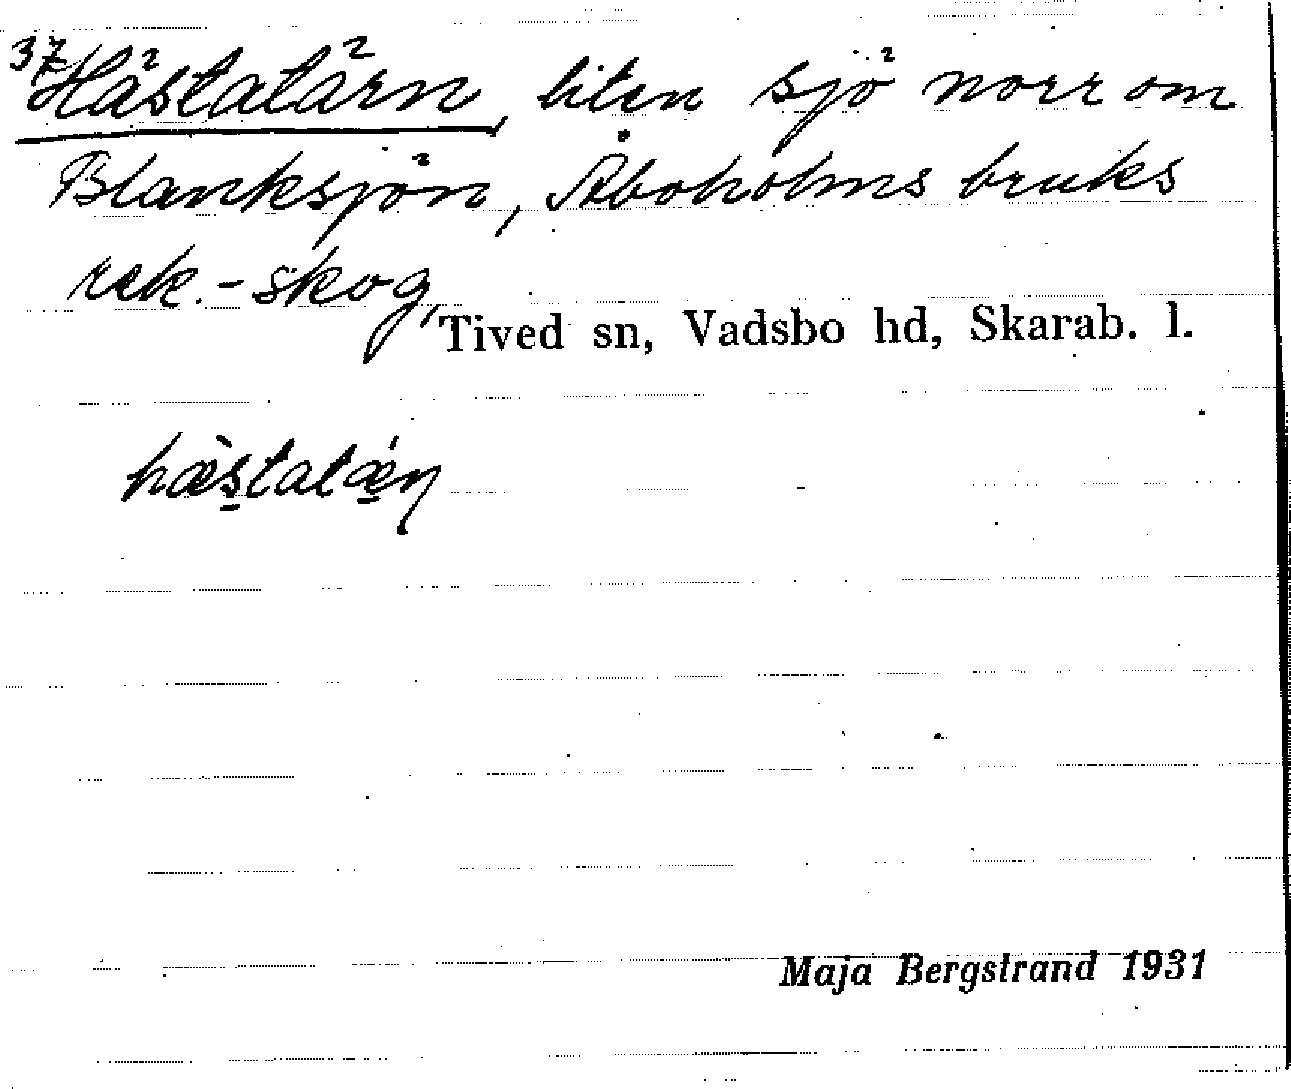 37 Hästatärn, liten sjö norr om
Blanksjön, Åboholms bruks
rek.-skog,
Tived sn, Vadsbo hd, Skarab. l.
hæ̀statǽn
Maja Bergstrand 1931